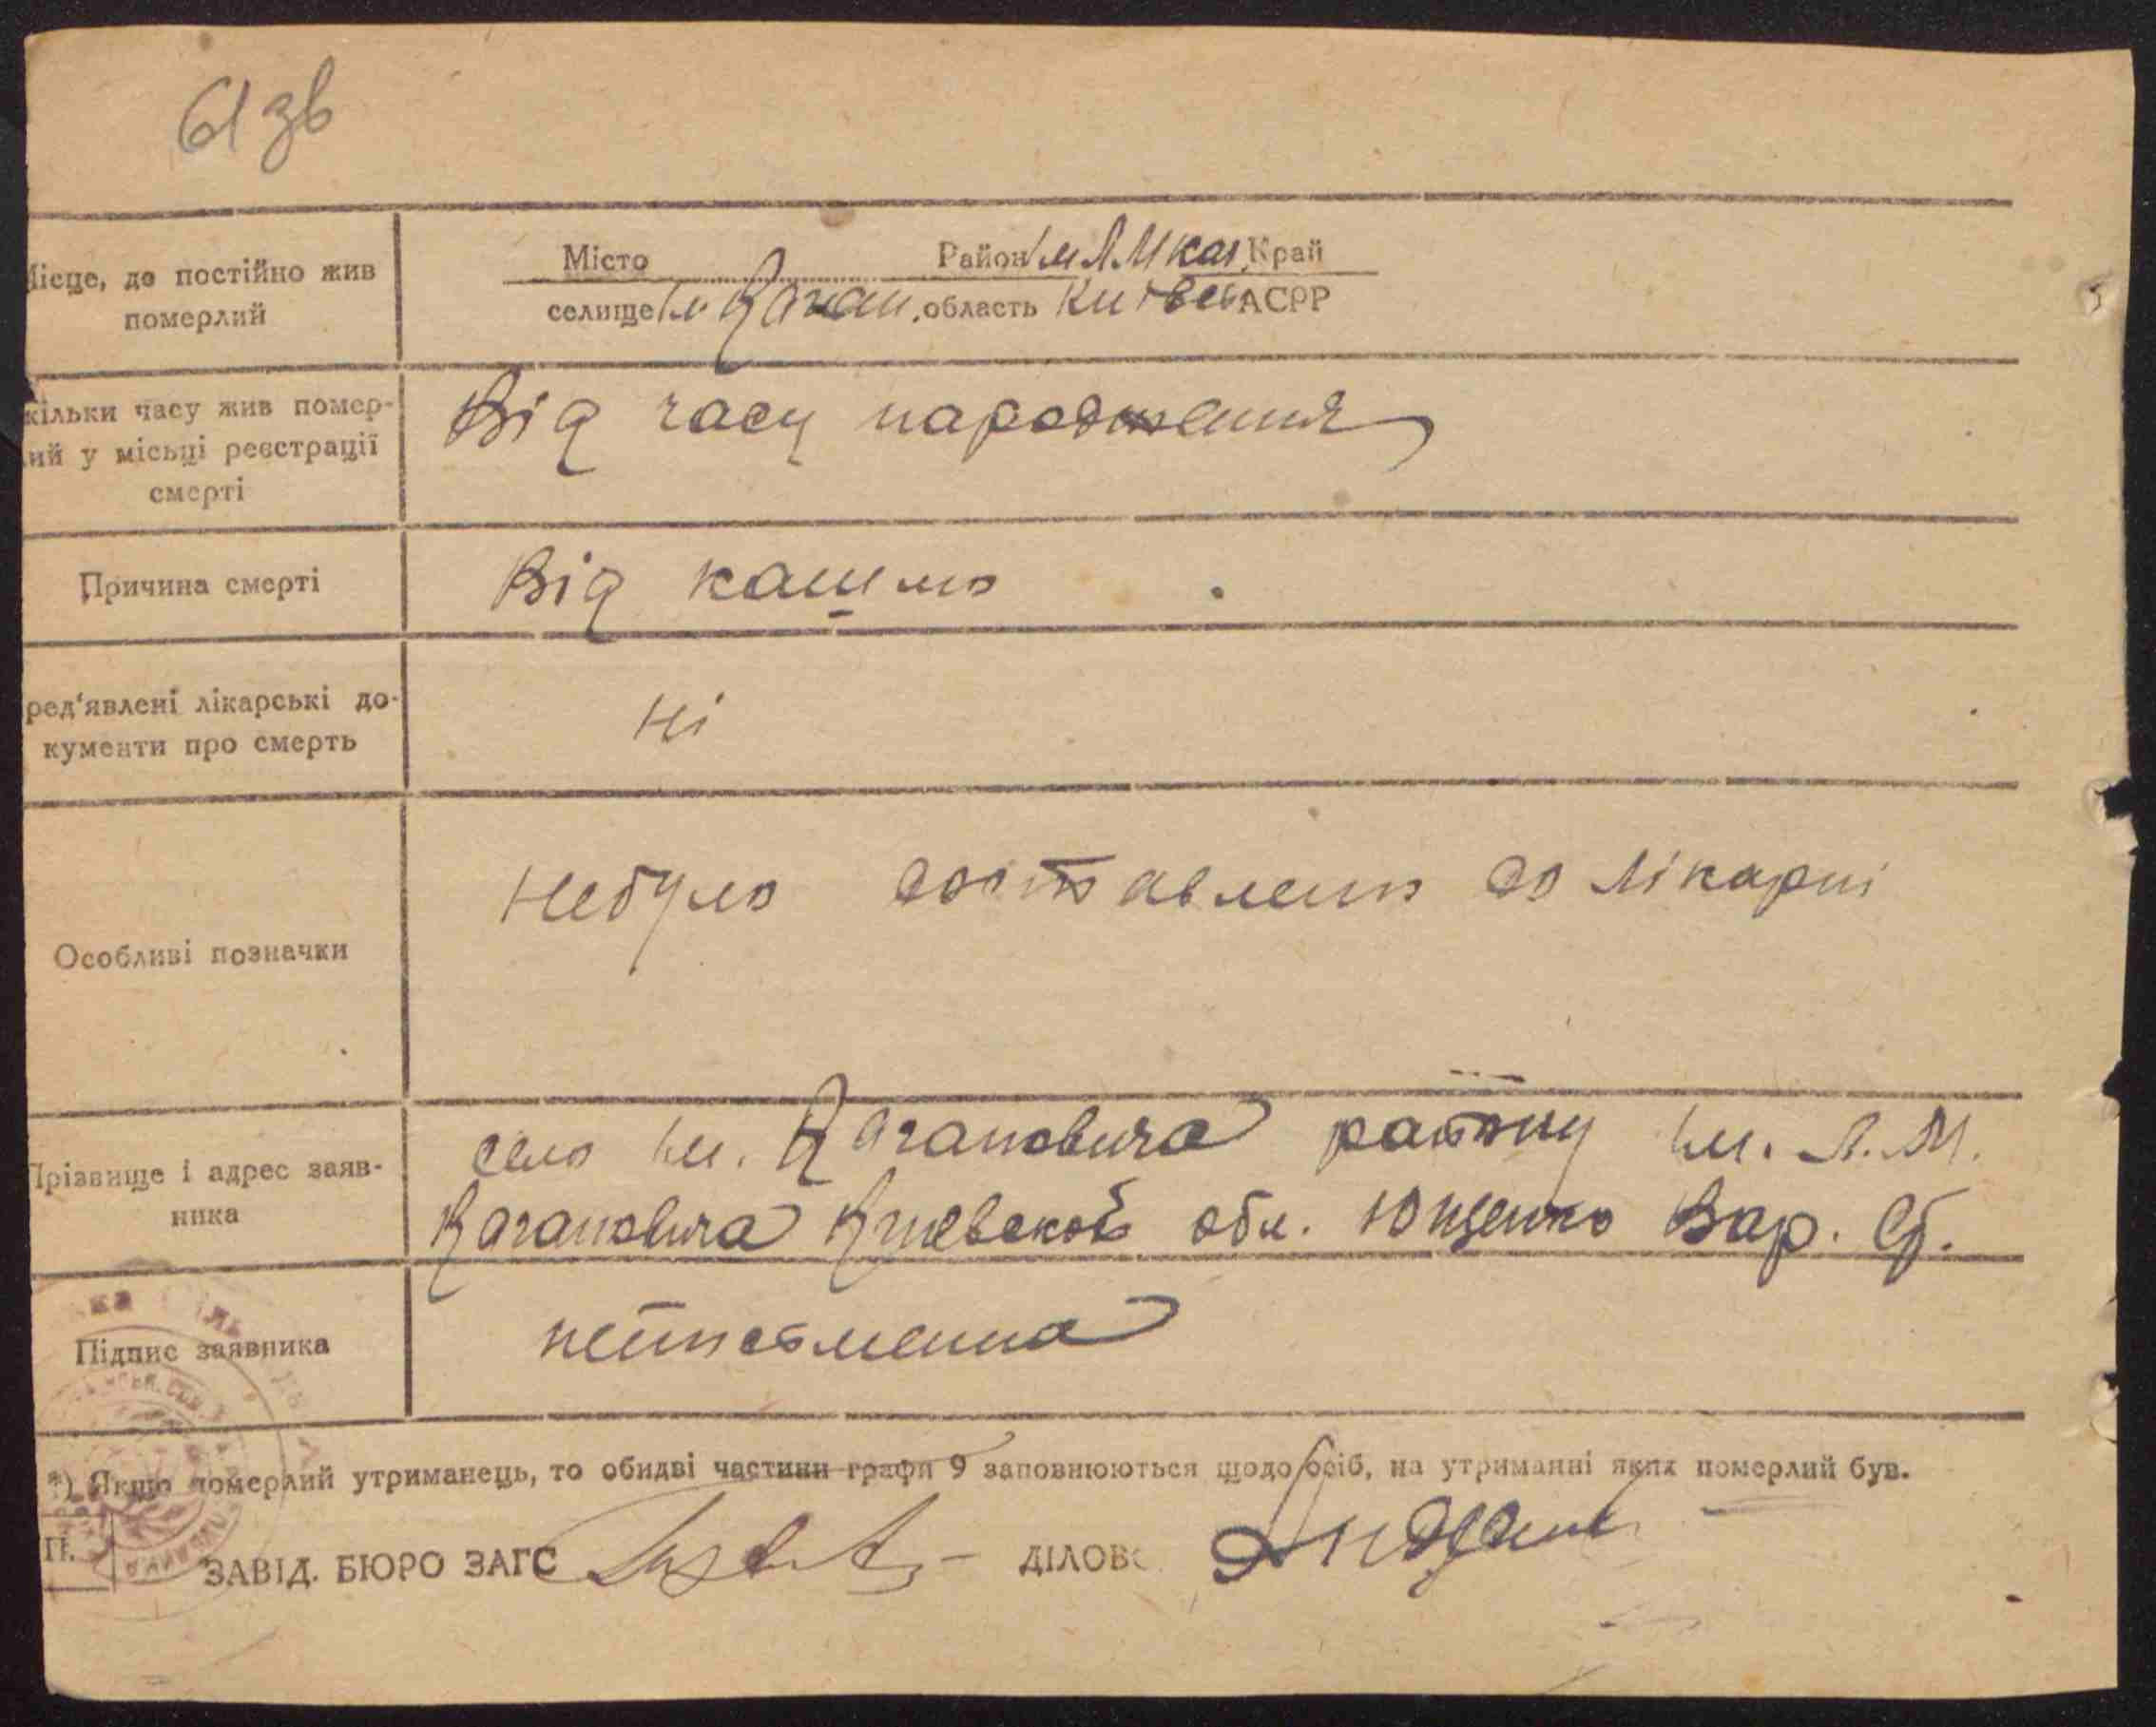 61 зв
Місто Район ім Л.М Каг. Край
Місце, де постійно жив
померлий
селище ім Каган. область Київськ АСРР
кільки часу жив помер-
ий у місьці реєстрації
смерті
Від часу народження
Причина смерті
Від кашлю
ред'явлені лікарські до-
кументи про смерть
Ні
Особливі позначки
Небуло доставлено до лікарні
Прізвище і адрес заяв-
ника
село ім. Кагановича району ім. Л.М.
Кагановича Киевской обл. Ющенко Вар. Єф.
Підпис заявника
неписьменна
*) Якщо померлий утриманець, то обидві частини графи 9 заповнюються щодо осіб, на утриманні яких померлий був.
П.
ЗАВІД. БЮРО ЗАГС ДІЛОВ